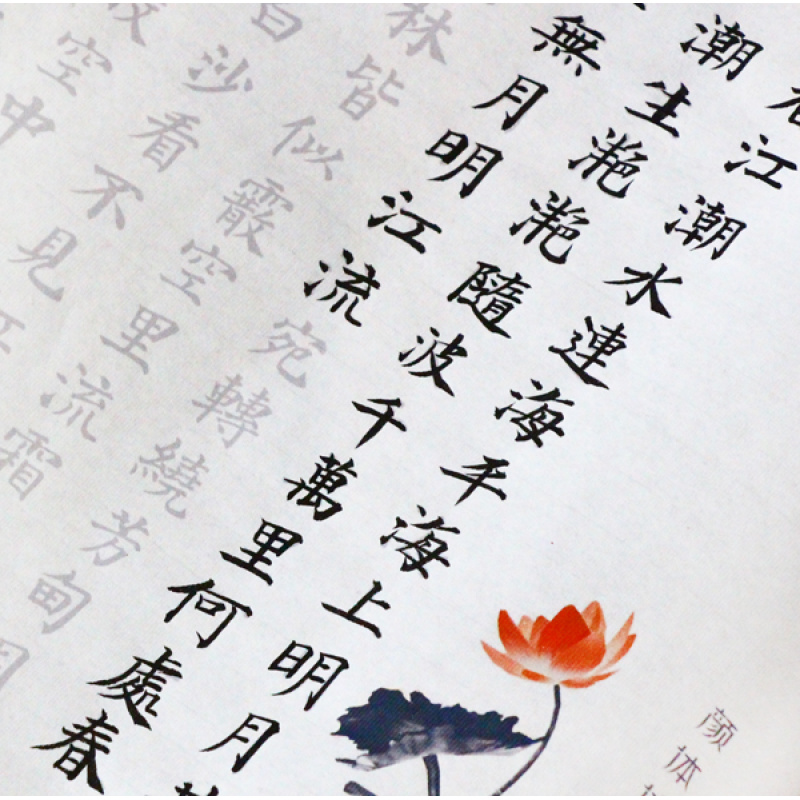 江潮水連海平海上明月
潮生滟滟隨波千萬里何處春
無月明江流宛轉繞芳甸月
林皆似霰空里流霜
白沙看不見江
皎空中
颜体